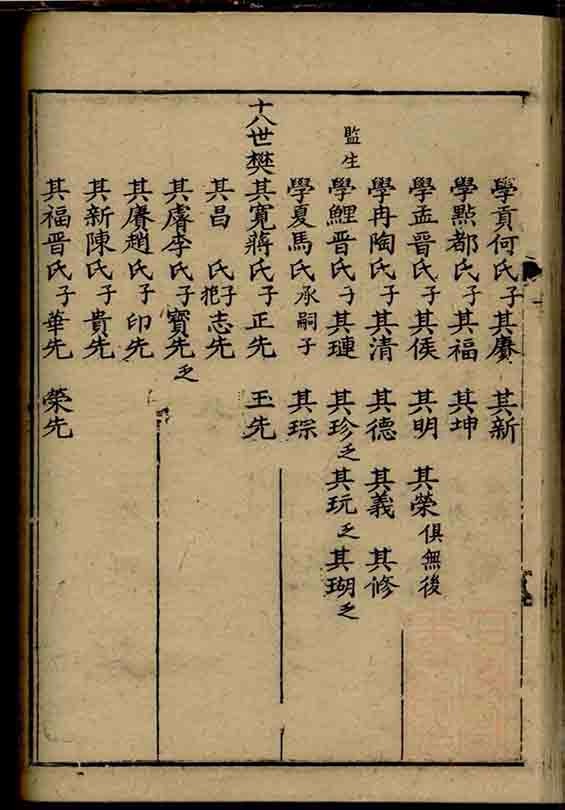 學貢何氏子其賡 其新
學點都氏子其福 其坤
學孟晋氏子其侯 其明 其榮俱無後
學冉陶氏子其清 其德 其義 其修
監生 學鯉晋氏子其璉 其珍乏其玩乏其瑚乏
學夏馬氏承嗣子 其琮
十八世樊其寬蔣氏子正先 玉先
其昌 氏子志先
其睿李氏子寶先乏
其賡趙氏子印先
其新陳氏子貴先
其福晋氏子華先 榮先